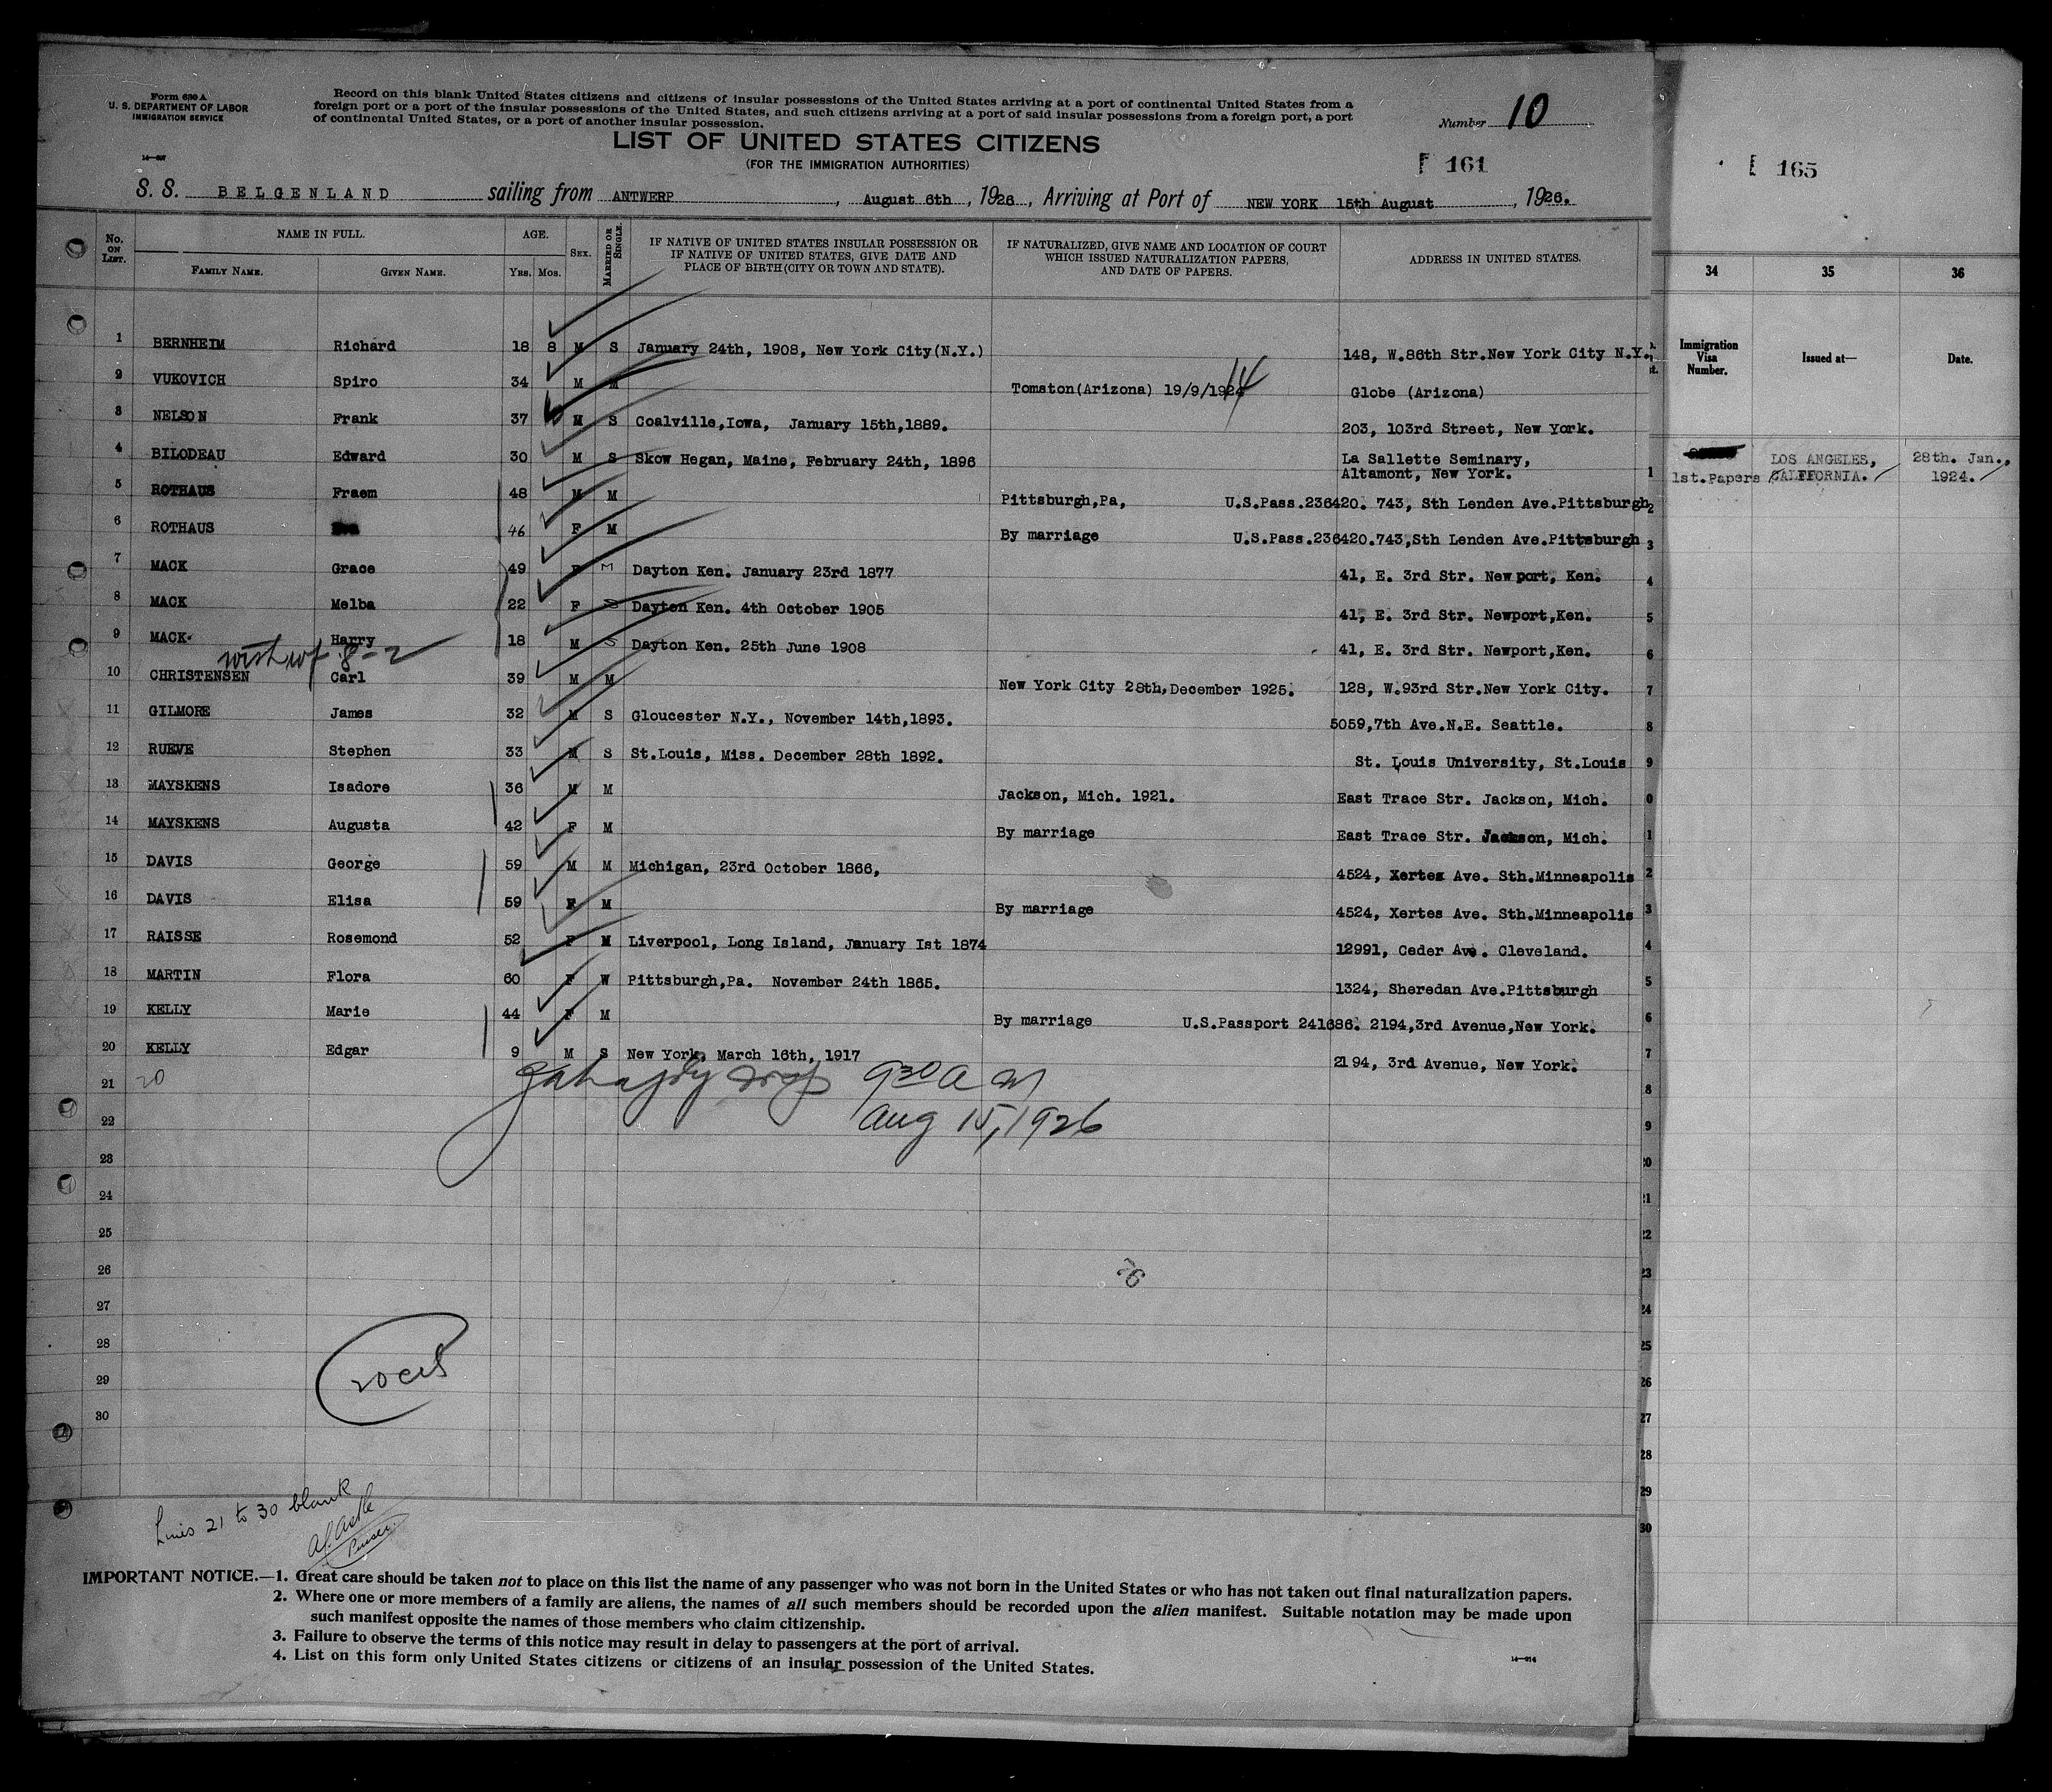 Form 630 A
U. S. DEPARTMENT OF LABOR
IMMIGRATION SERVICE
Record on this blank United States citizens and citizens of insular possessions of the United States arriving at a port of continental United States from a
foreign port or a port of the insular possessions of the United States, and such citizens arriving at a port of said insular possessions from a foreign port, a port
of continental United States, or a port of another insular possession.
Number 10
LIST OF UNITED STATES CITIZENS
(FOR THE IMMIGRATION AUTHORITIES)
161
165
S. S. BELGENLAND sailing from ANTWERP, August 6th, 1926, Arriving at Port of NEW YORK 15th August, 1926.
No. ON LIST.
NAME IN FULL.
FAMILY NAME. GIVEN NAME.
AGE.
YRS. MOS.
SEX.
MARRIED OR SINGLE.
IF NATIVE OF UNITED STATES INSULAR POSSESSION OR
IF NATIVE OF UNITED STATES, GIVE DATE AND
PLACE OF BIRTH (CITY OR TOWN AND STATE).
IF NATURALIZED, GIVE NAME AND LOCATION OF COURT
WHICH ISSUED NATURALIZATION PAPERS,
AND DATE OF PAPERS.
ADDRESS IN UNITED STATES.
34 35 36
Immigration Visa Number. Issued at— Date.
1 BERNHEIM Richard 18 8 M S January 24th, 1908, New York City(N.Y.) 148, W.86th Str.New York City N.Y.
2 VUKOVICH Spiro 34 M M Tomston(Arizona) 19/9/1924 14 Globe (Arizona)
3 NELSON Frank 37 M S Coalville,Iowa, January 15th,1889. 203, 103rd Street, New York.
4 BILODEAU Edward 30 M S Skow Hegan, Maine, February 24th, 1896 La Sallette Seminary,
Altamont, New York.
1st.Papers LOS ANGELES, CALIFORNIA. 28th. Jan., 1924.
5 ROTHAUS Fraem 48 M M Pittsburgh,Pa, U.S.Pass.236420. 743, Sth Lenden Ave.Pittsburgh
6 ROTHAUS 46 F M By marriage U.S.Pass.236420.743,Sth Lenden Ave.Pittsburgh
7 MACK Grace 49 F M Dayton Ken. January 23rd 1877 41, E. 3rd Str. Newport, Ken.
8 MACK Melba 22 F S Dayton Ken. 4th October 1905 41, E. 3rd Str. Newport,Ken.
9 MACK Harry 18 M S Dayton Ken. 25th June 1908 41, E. 3rd Str. Newport,Ken.
8-2
10 CHRISTENSEN Carl 39 M M New York City 28th,December 1925. 128, W.93rd Str.New York City.
11 GILMORE James 32 M S Gloucester N.Y., November 14th,1893. 5059,7th Ave.N.E. Seattle.
12 RUEVE Stephen 33 M S St.Louis, Miss. December 28th 1892. St. Louis University, St.Louis
13 MAYSKENS Isadore 36 M M Jackson, Mich. 1921. East Trace Str. Jackson, Mich.
14 MAYSKENS Augusta 42 F M By marriage East Trace Str. Jackson, Mich.
15 DAVIS George 59 M M Michigan, 23rd October 1866, 4524, Xertes Ave. Sth.Minneapolis
16 DAVIS Elisa 59 F M By marriage 4524, Xertes Ave. Sth.Minneapolis
17 RAISSE Rosemond 52 F M Liverpool, Long Island, January Ist 1874 12991, Ceder Ave. Cleveland.
18 MARTIN Flora 60 F W Pittsburgh,Pa. November 24th 1865. 1324, Sheredan Ave.Pittsburgh
19 KELLY Marie 44 F M By marriage U.S.Passport 241686. 2194,3rd Avenue,New York.
20 KELLY Edgar 9 M S New York, March 16th, 1917 2194, 3rd Avenue, New York.
21 20
930 am
22 Aug 15, 1926
23
24
25
26
27
28
29
30
Lines 21 to 30 blank
Purser.
IMPORTANT NOTICE.—1. Great care should be taken not to place on this list the name of any passenger who was not born in the United States or who has not taken out final naturalization papers.
2. Where one or more members of a family are aliens, the names of all such members should be recorded upon the alien manifest. Suitable notation may be made upon
such manifest opposite the names of those members who claim citizenship.
3. Failure to observe the terms of this notice may result in delay to passengers at the port of arrival.
4. List on this form only United States citizens or citizens of an insular possession of the United States.
14—914